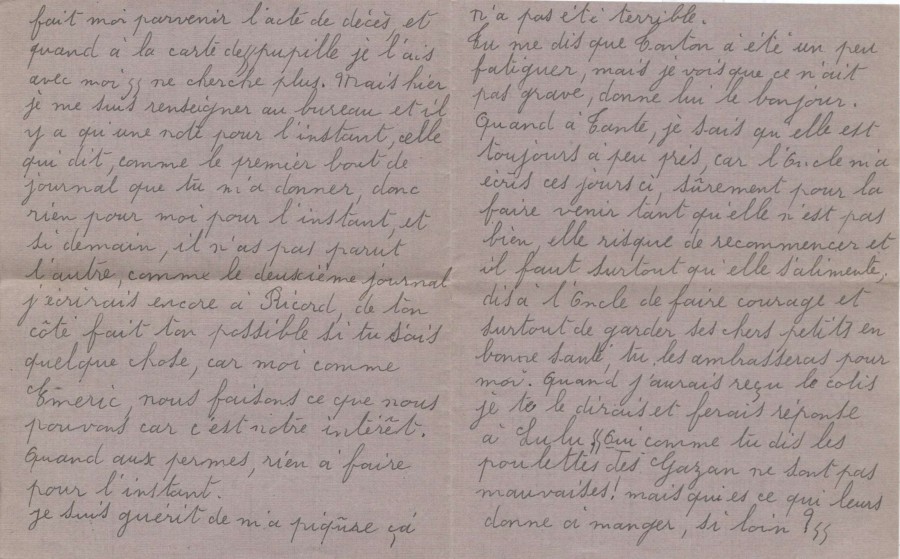 fait moi parvenir l'acte de décès, et
quand à la carte des pupille je l'ais
avec moi ne cherche plus. Mais hier
je me suis renseigner au bureau et il
y a qu'une note pour l'instant, celle
qui dit, comme le premier bout de
journal que tu m'a donner, donc
rien pour moi pour l'instant, et
si demain, il n'as pas parut
l'autre, comme le deuxième journal
j'écrirais encore à Ricord, de ton
côté fait ton possible si tu sais
quelque chose, car moi comme
Emeric, nous faisons ce que nous
pouvons car c'est notre intérêt.
Quand aux permes, rien à faire
pour l'instant.
je suis guérit de m'a piqûre çá
n'a pas été terrible.
Tu me dis que Tonton a été un peu
fatiguer, mais je vois que ce n'ait
pas grave, donne lui le bonjour.
Quand à Tante, je sais qu'elle est
toujours à peu près, car l'Oncle m'a
écris ces jours ci, sûrement pour la
faire venir tant qu'elle n'est pas
bien, elle risque de recommencer et
il faut surtout qu'elle s'alimente,
dis à l'Oncle de faire courage et
surtout de garder ses chers petits en
bonne santé, tu les ambrasseras pour
moi. Quand j'aurais reçu le colis
je te le dirais et ferais réponse
à Lulu !! Oui comme tu dis les
poulettes des Gazan ne sont pas
mauvaises! mais qui es ce qui leurs
donne à manger, si loin ?